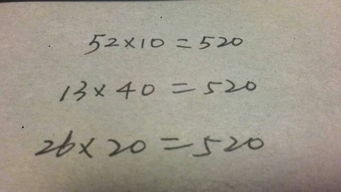 52×10=520
13×40=520
26×20=520